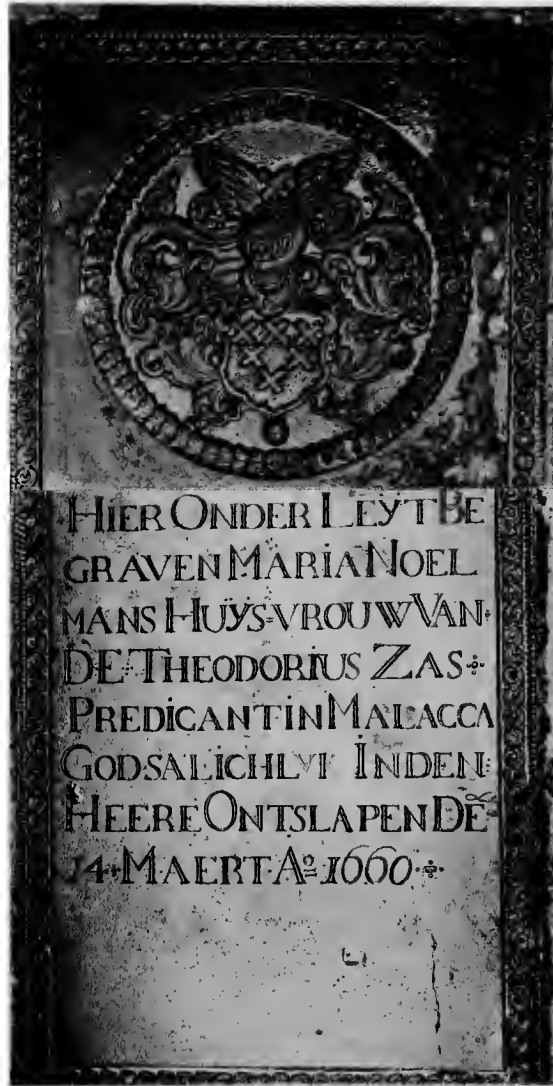 HIER ONDER LEYT BE
GRAVEN MARIA NOEL
MANS HUYS=VROUW VAN·
DE THEODORIUS ZAS
PREDICANT IN MALACCA
GODSALICHLYI INDEN
HEERE ONTSLAPEN DE
MAERT Aº 1660